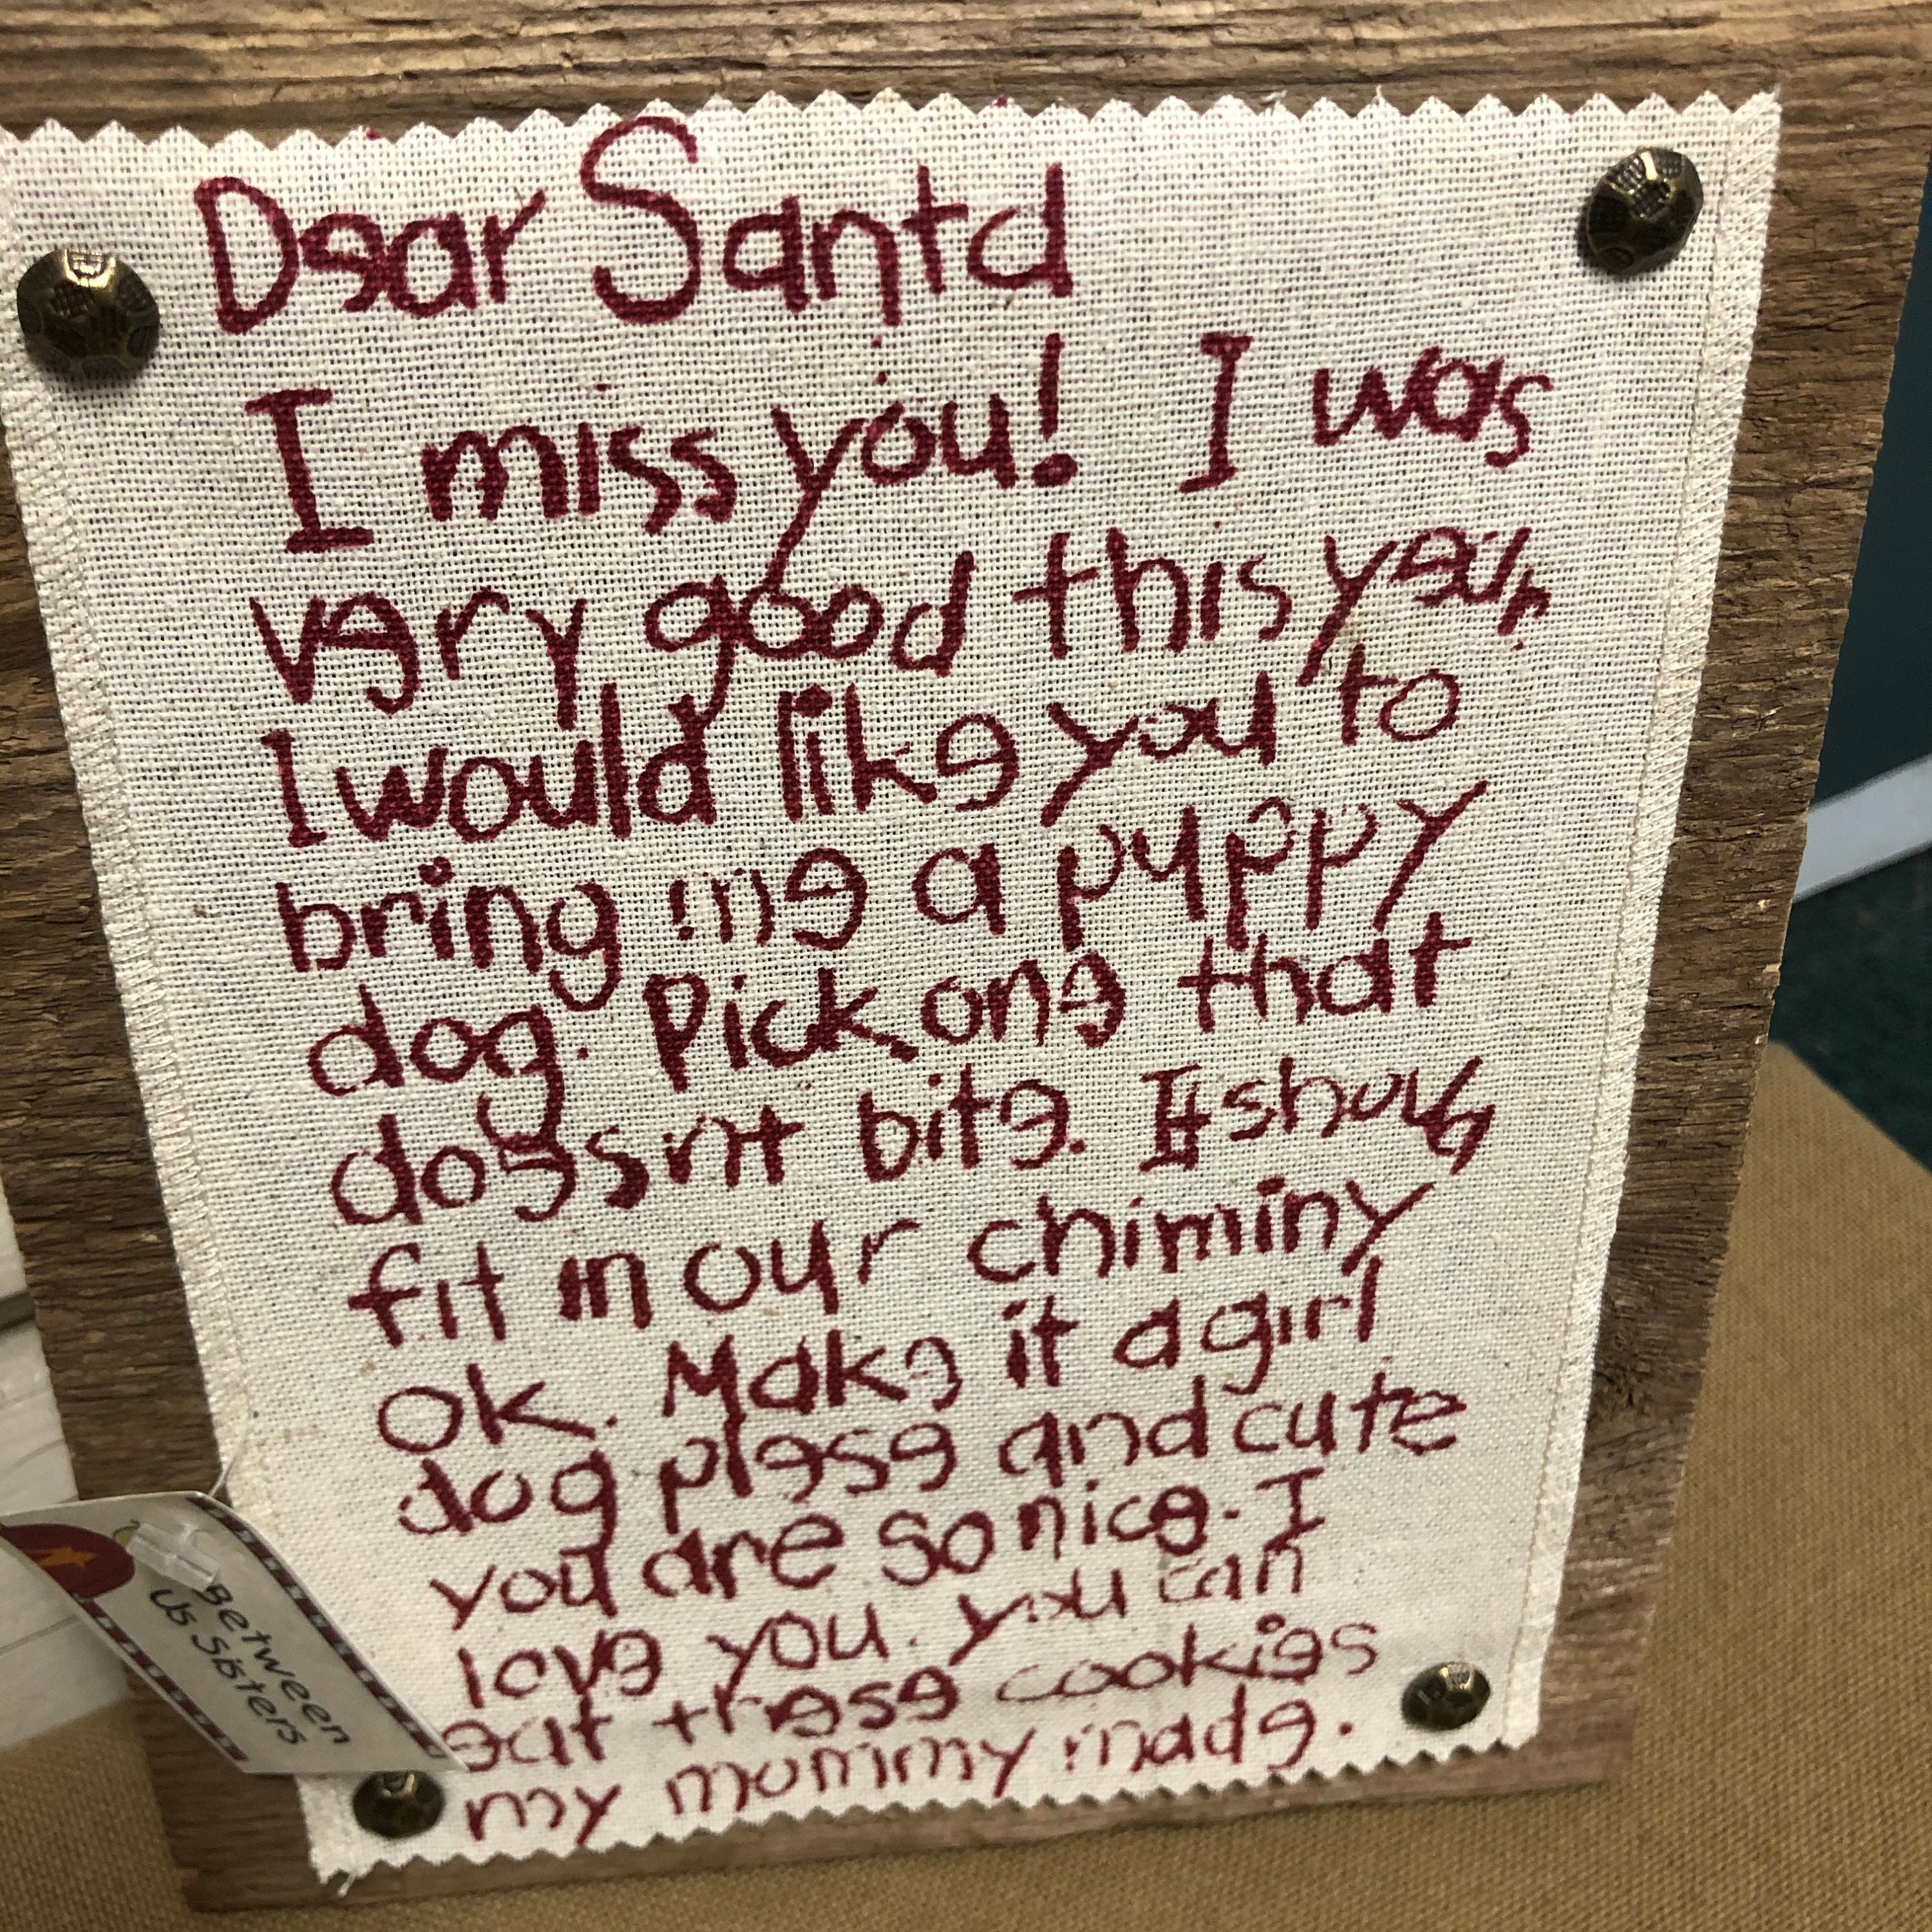 Dear Santa
I miss you! I was
very good this year
I would like you to
bring me a puppy
dog. Pick one that
doesnt bite. It should
fit in our chiminy
ok. Make it a girl
dog plese and cute
you are so nice. I
love you. you can
eat these cookies
my mommy made.
Between
Us Sisters